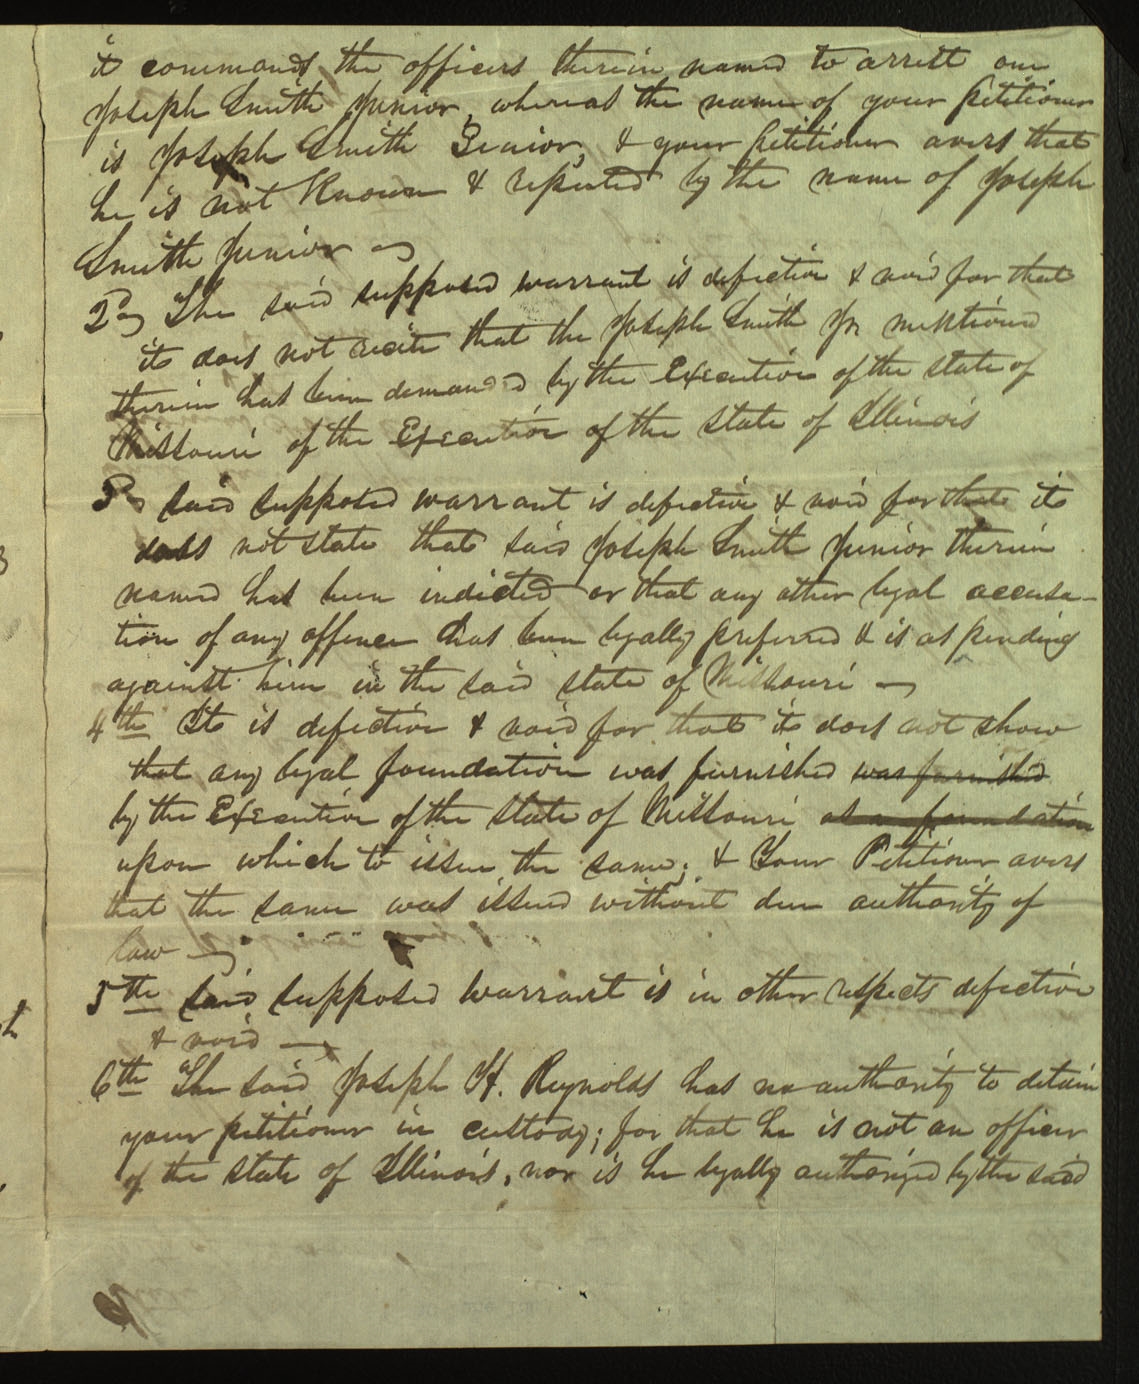 it commands the officers therein named to arrest one
Joseph Smith Junior, whereas the name of your Petitioner
is Joseph Smith Senior, & your petitioner avers that
he is not Known & reputed by the name of Joseph
Smith Junior —
2d The said supposed warrant is defective & void for that
it does not recite that the Joseph Smith Jr mentioned
therein has been demanded by the Executive of the state of
Missouri of the Executive of the state of Illinois
3d said supposed warrant is defective & void for that it
does not state that said Joseph Smith Junior therein
named has been indicted or that any other legal accusa-
tion of any offence has been legally preferred & is as pending
against him in the said state of Missouri —
4th It is defective & void for that it does not show
that any legal foundation was furnished was furnished
by the Executive of the state of Missouri as a foundation
upon which to issue the same; & Your Petitioner avers
that the same was issued without due authority of
law —
5th said supposed warrant is in other respects defective
& void —
6th The said Joseph H. Reynolds has no authority to detain
your petitioner in custody; for that he is not an officer
of the state of Illinois, nor is he legally authorized by the said